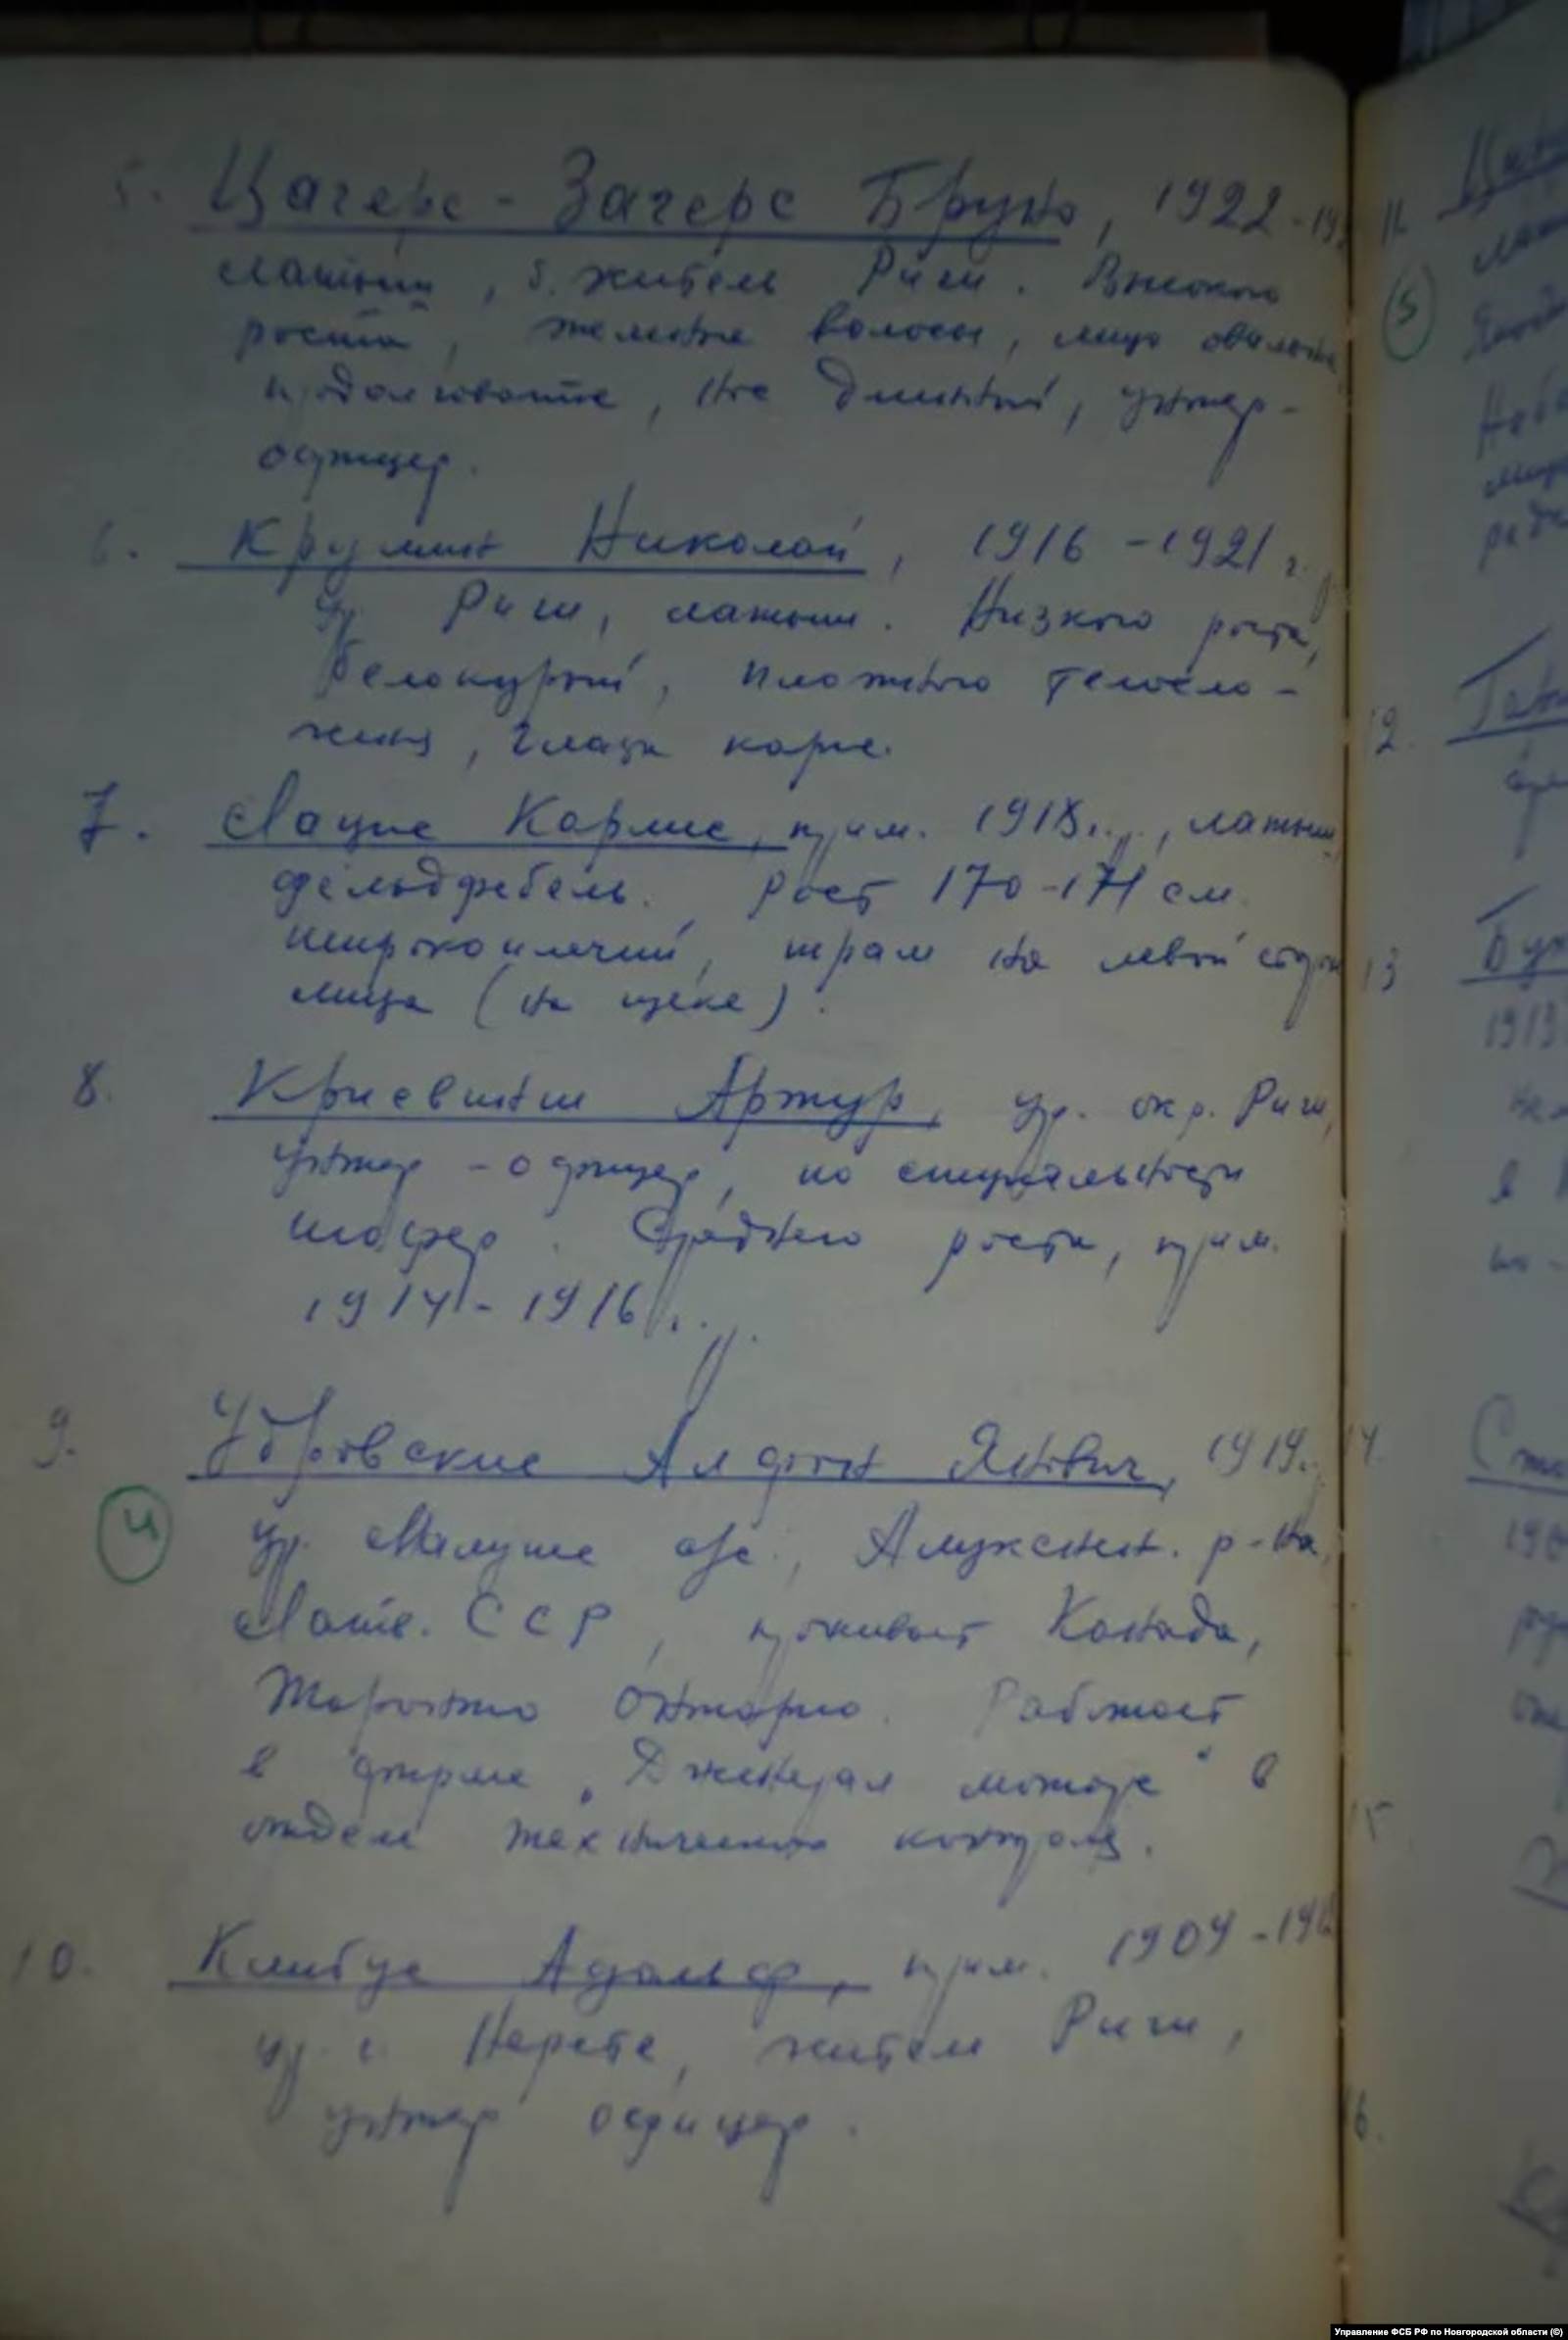 5. Цагерс - Загерс Бруно, 1922 - 19
латыш, б. житель Риги. Высокого
роста, желтые волосы, лицо овальное
продолговатое, нос длинный, унтер-
офицер.
6. Круминь Николай, 1916 - 1921 г.р.,
ур. Риги, латыш. Низкого роста,
белокурый, плотного телосло-
жения, глаза карие.
7. Лацис Карлис, прим. 1918 г.р., латыш,
фельдфебель. Рост 170-171 см.
широкоплечий, шрам на левой стороне
лица (на щеке).
8. Криевиньш Артур, ур. окр. Риги,
унтер-офицер, по специальности
шофер. Среднего роста, прим.
1914 - 1916 г.р.
9. Убровскис Алфон Янович, 1919 г.р.
4 ур. Малупе с/с., Алуксненн. р-на,
Латв. ССР, проживает Канада,
Торонто Онтарио. Работает
в фирме „Дженерал моторс" в
отделе технического контроля.
10. Клибус Адольф, прим. 1904 - 191
ур. г. Нерете, житель Риги,
унтер офицер.
11.
5
12.
13
1913
14.
15
16.
Управление ФСБ РФ по Новгородской области (©)